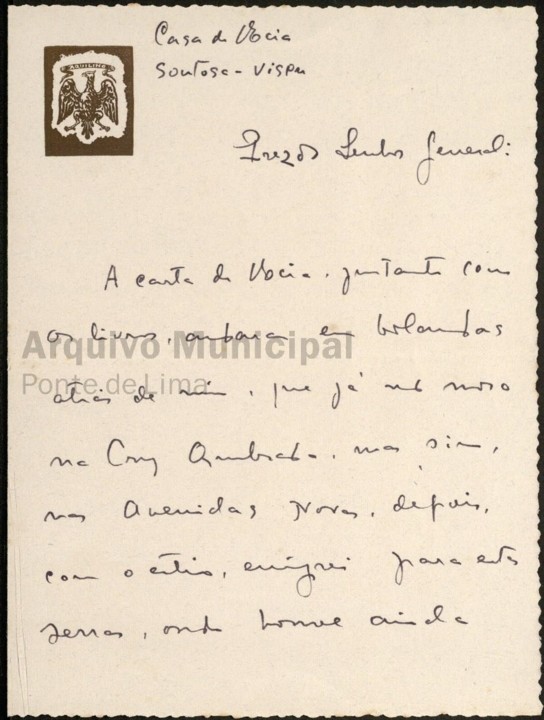 AQUILINO
Casa de Vocia
Soutosa - Viseu
Prezdo Senhor General:
A carta de Vocia, juntante com
os livros, andara em bolandas
atrás de mim, que já não moro
na Cruz Quebrada, mas sim,
nas Avenidas Novas, depois,
com o estio, emigrei para estas
serras, onde houve ainda
Arquivo Municipal
Ponte de Lima